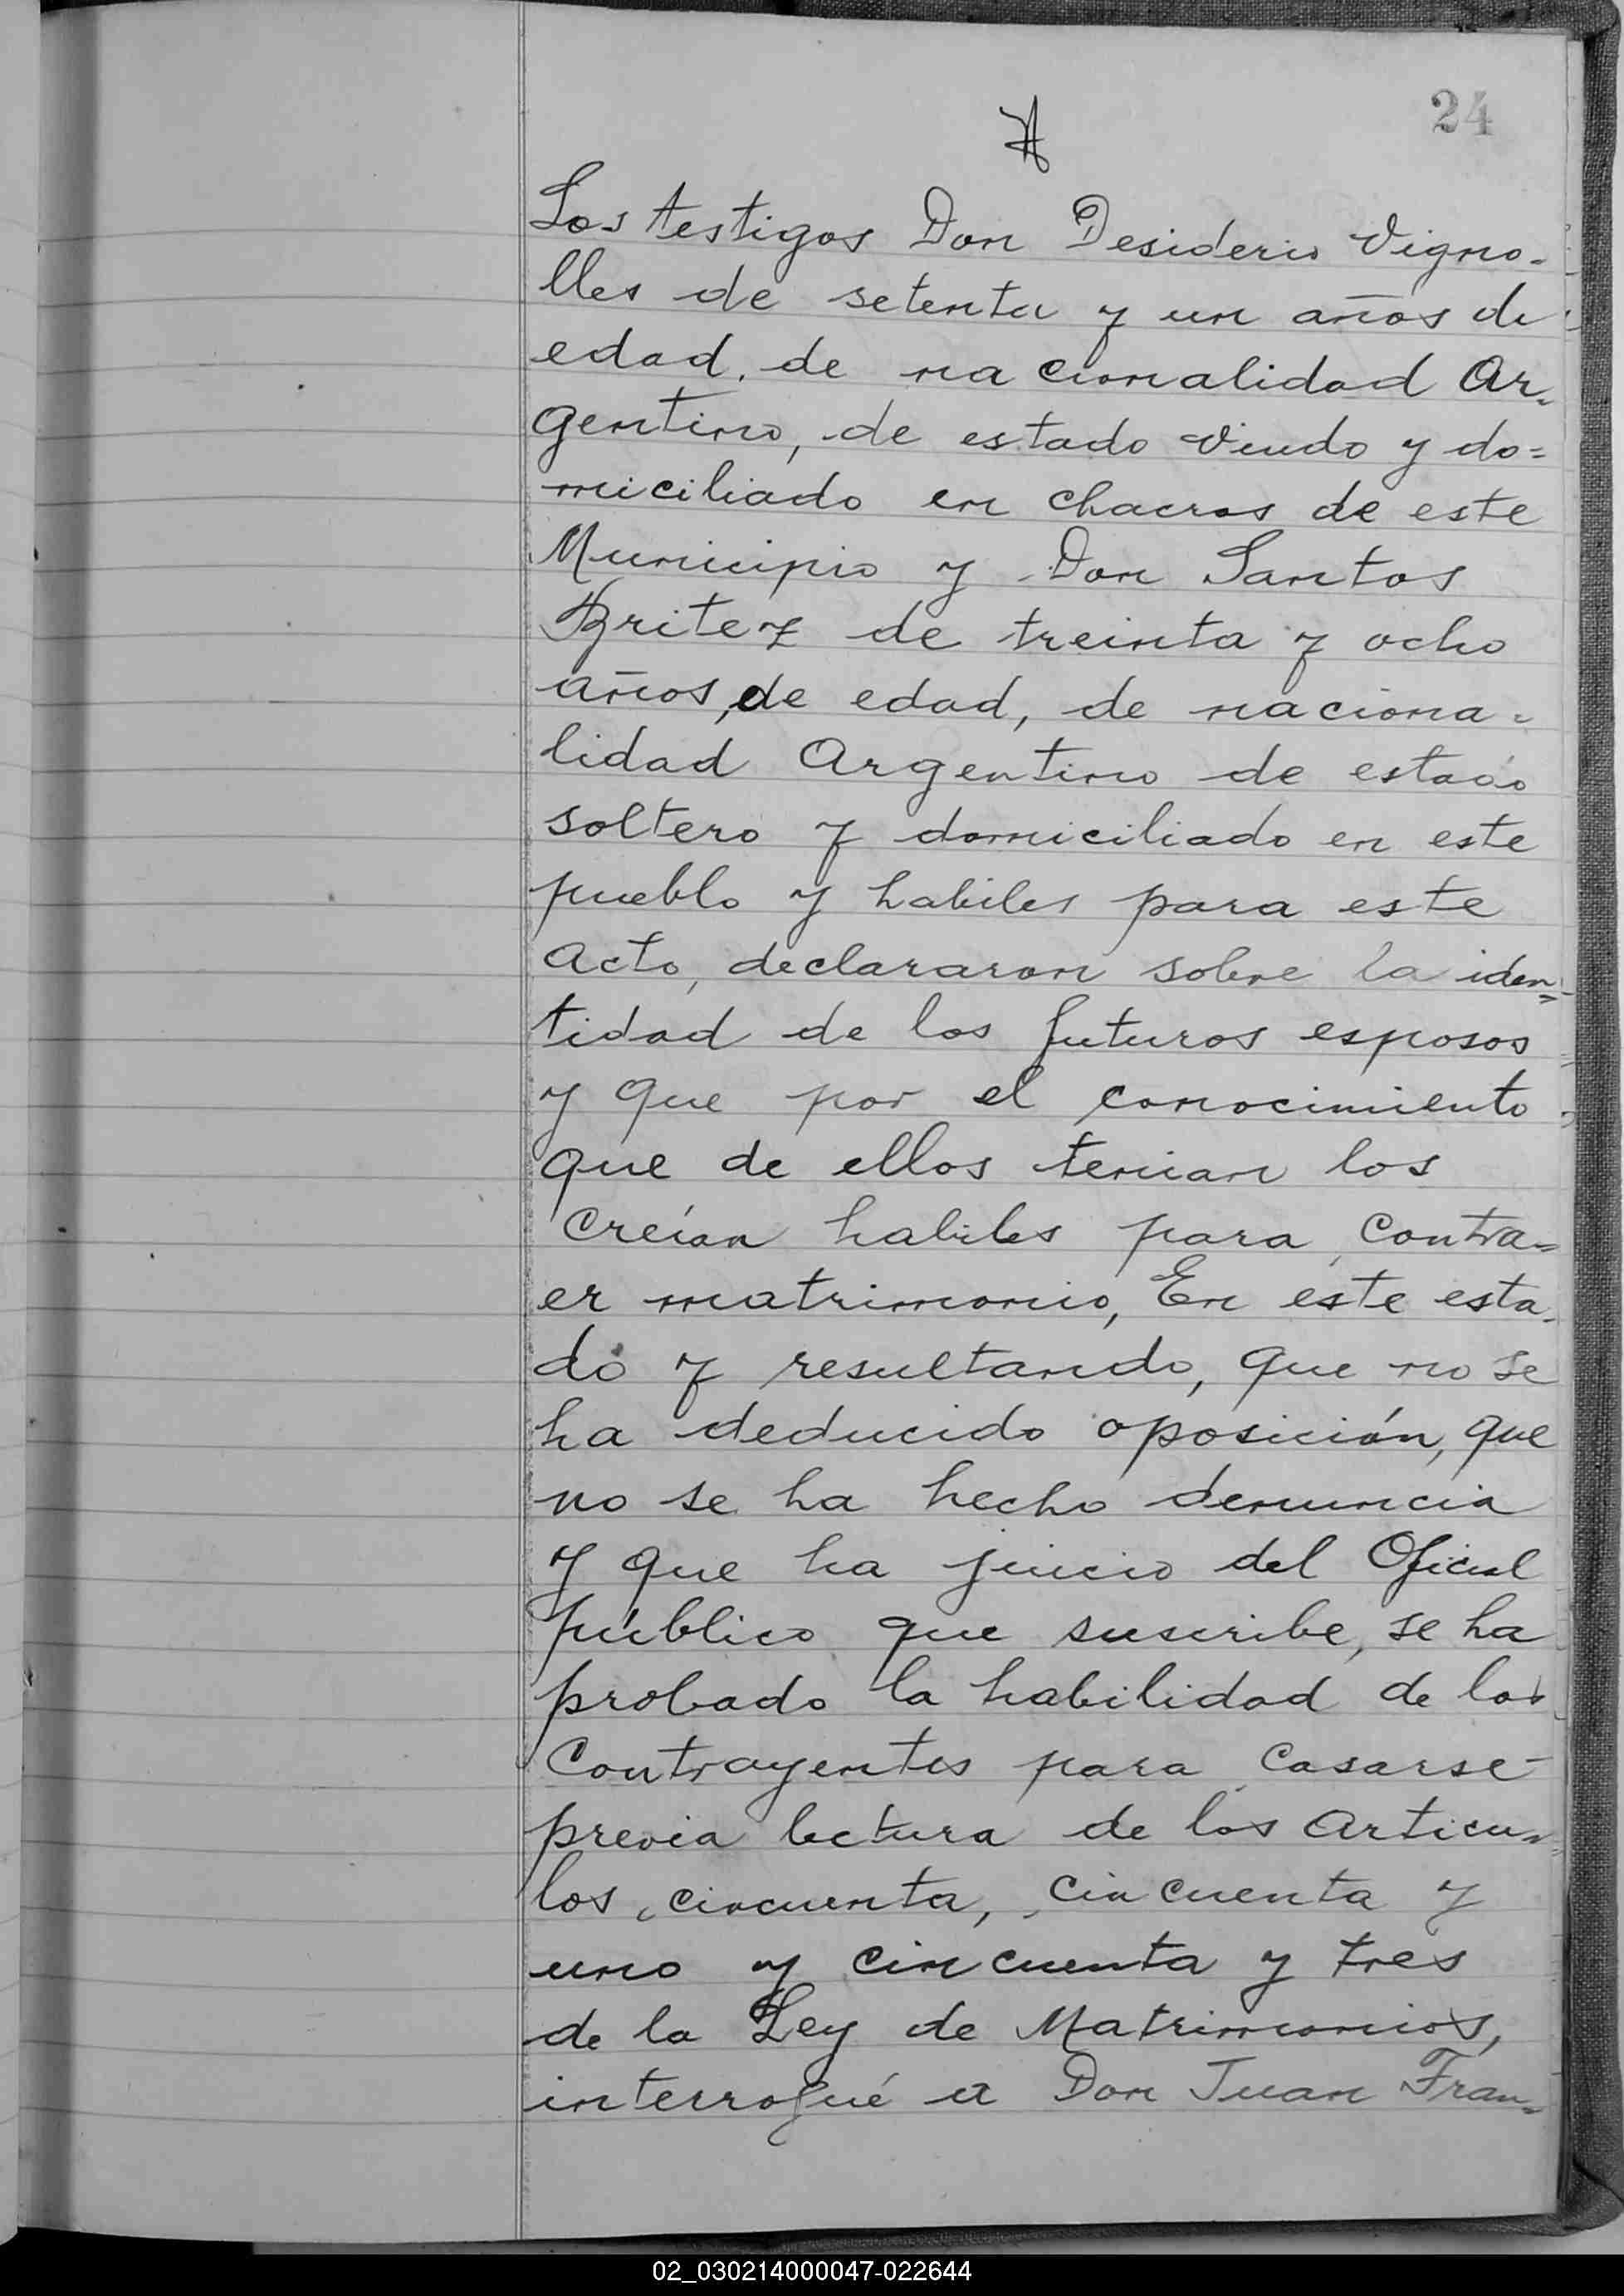 24
Los testigos Don Desiderio Vigno-
lles de setenta y un años de
edad, de nacionalidad Ar-
gentino, de estado viudo y do=
miciliado en chacras de este
Municipio y Don Santos
Britez de treinta y ocho
años, de edad, de naciona-
lidad Argentino de estado
soltero y domiciliado en este
pueblo y habiles para este
acto, declararon sobre la iden=
tidad de los futuros esposos
y que por el conocimiento
que de ellos tenian los
creían habiles para contra=
er matrimonio, En éste esta-
do y resultando, que no se
ha deducido oposición, que
no se ha hecho denuncia
y que ha juicio del Oficial
público que suscribe, se ha
probado la habilidad de los
Contrayentes para casarse
previa lectura de los articu=
los, cincuenta, cincuenta y
uno y cincuenta y tres
de la Ley de Matrimonios,
interrogué a Don Juan Fran=
02_030214000047-022644